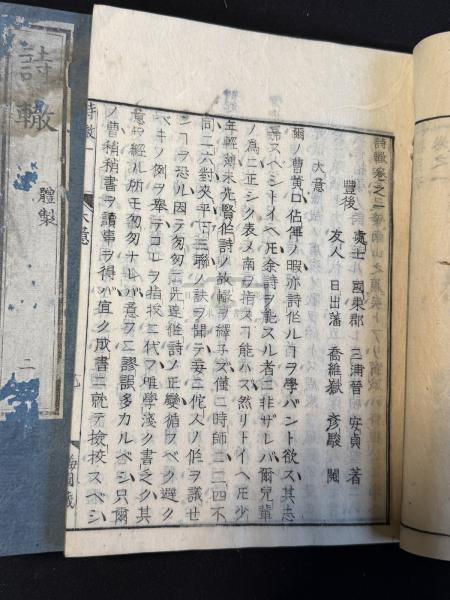 詩轍
體製
二
詩轍卷之一
豐後 處士 國東郡 三浦晉 安貞 著
友人 日出藩 喬維嶽 彥駿 閱
大意
爾ノ曹黄口佔俾ノ暇亦詩作ルコヲ學バント欲ス其志
歸スベシトイヘ𪜈余詩ヲ能スル者ニ非ザレバ爾兒輩
ノ爲ニ正シク表ノ南ヲ指スコ能ハズ然リトイヘ𪜈少
年輕薄未先賢作詩ノ故轍ヲ繹子ズ僅ニ時師ニ二四不
同二六對夾平下三聯ノ訣ヲ聞テ妄ニ佗人ノ作ヲ議セ
ンコヲ恐ル因テ匆匆ニ先達作詩ノ正變循フベク避ク
ベキノ例ヲ擧テコレヲ指授ニ代フ唯學淺ク書乏ク其
意ヤ經ル所モ匆匆ナレバ意フニ謬誤多カルベシ只爾
ノ曹稍稍書ヲ讀事ヲ得バ宜ク成書ニ就テ撿挍スベシ
詩轍 一
大意
梅園藏